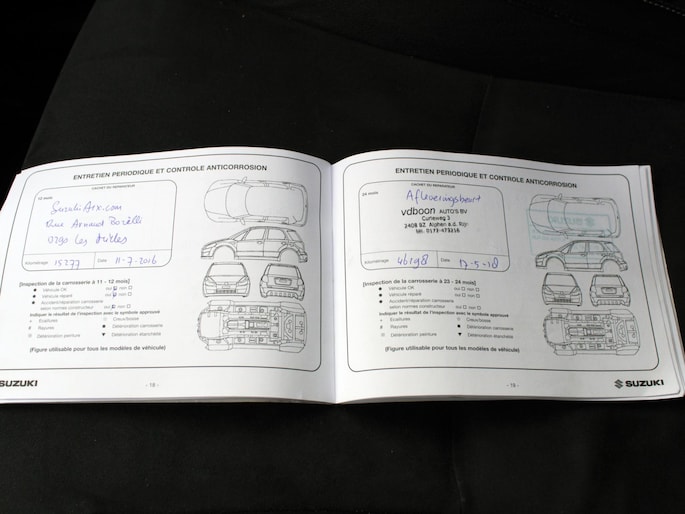 ENTRETIEN PERIODIQUE ET CONTROLE ANTICORROSION
CACHET DU REPARATEUR
12 mois
Rue Arnaud
Les
Kilométrage 15277 Date 11-7-2016
[Inspection de la carrosserie à 11 - 12 mois]
Véhicule OK oui non
Véhicule réparé oui non
Accident/réparation carrosserie
selon normes constructeur oui non
Indiquer le résultat de l'inspection avec le symbole approuvé
Ecaillures Creux/bosse
Rayures Détérioration carrosserie
Détérioration peinture Détérioration étanchéité
(Figure utilisable pour tous les modèles de véhicule)
SUZUKI
- 18 -
ENTRETIEN PERIODIQUE ET CONTROLE ANTICORROSION
CACHET DU REPARATEUR
24 mois
Afleveringsbeurt
vdboon AUTO'S BV
Curieweg 3
2408 BZ Alphen a.d. Rijn
Kilométrage 46198 Date 17-5-18
[Inspection de la carrosserie à 23 - 24 mois]
Véhicule OK oui non
Véhicule réparé oui non
Accident/réparation carrosserie
selon normes constructeur oui non
Indiquer le résultat de l'inspection avec le symbole approuvé
Ecaillures Creux/bosse
Rayures Détérioration carrosserie
Détérioration peinture Détérioration étanchéité
(Figure utilisable pour tous les modèles de véhicule)
SUZUKI